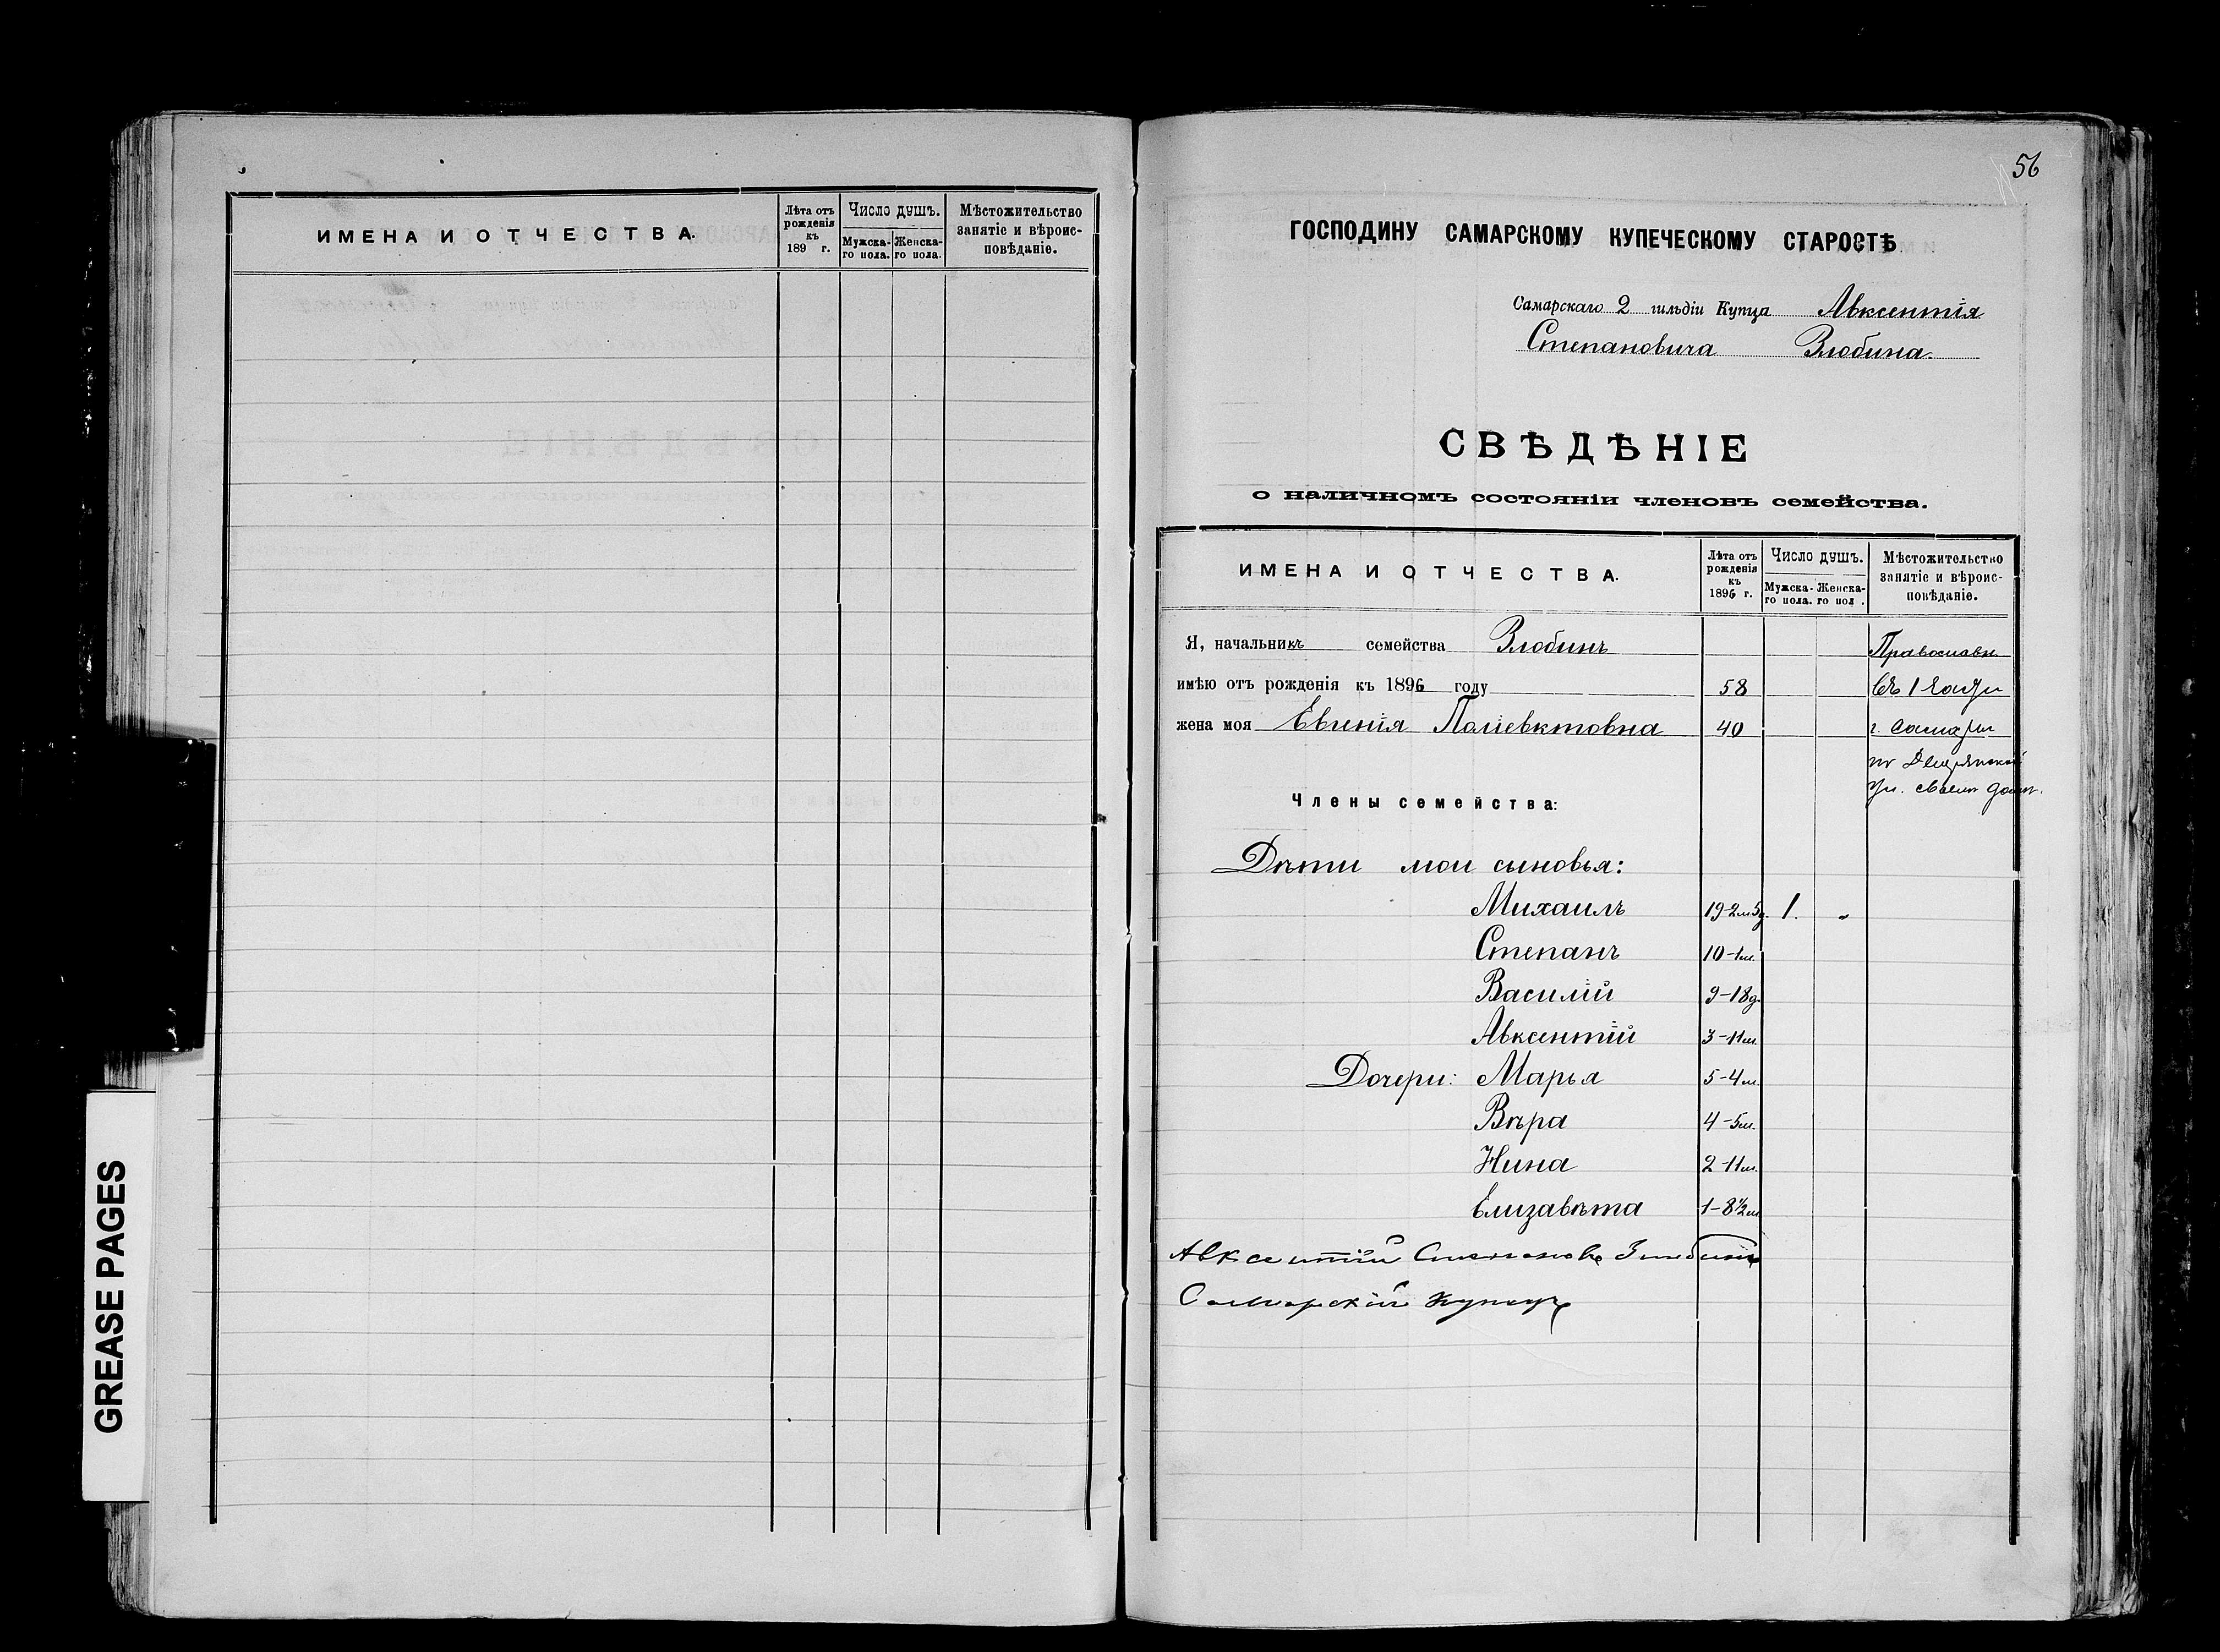 ИМЕНА И ОТЧЕСТВА.
Лѣта отъ рожденія къ 189 г.
Число душъ.
Мужска-го пола.
Женска-го пола.
Мѣстожительство занятіе и вѣроис-повѣданіе.
GREASE PAGES
56
ГОСПОДИНУ САМАРСКОМУ КУПЕЧЕСКОМУ СТАРОСТѢ
Самарскаго 2 гильдіи Купца Авксентія
Степановича Злобина.
СВѢДѢНІЕ
о наличномъ состояніи членовъ семейства.
ИМЕНА И ОТЧЕСТВА.
Лѣта отъ рожденія къ 1896 г.
Число душъ.
Мужска-го пола.
Женска-го пол .
Мѣстожительство занятіе и вѣроис-повѣданіе.
Я, начальникъ семейства Злобинъ Православн.
имѣю отъ рожденія къ 1896 году 58 Въ 1 части
жена моя Евгенія Поліевктовна 40 г. Самары
по Дворянской
ул. своемъ домѣ.
Члены семейства:
Дѣти мои сыновья:
Михаилъ 19-2м5д. 1. „
Степанъ 10-1м.
Василій 9-18д.
Авксентій 3-11м.
Дочери: Марья 5-4м.
Вѣра 4-5м.
Нина 2-11м.
Елизавѣта 1-8½м
Авксентій Степановъ Злобинъ
Самарскій Купецъ